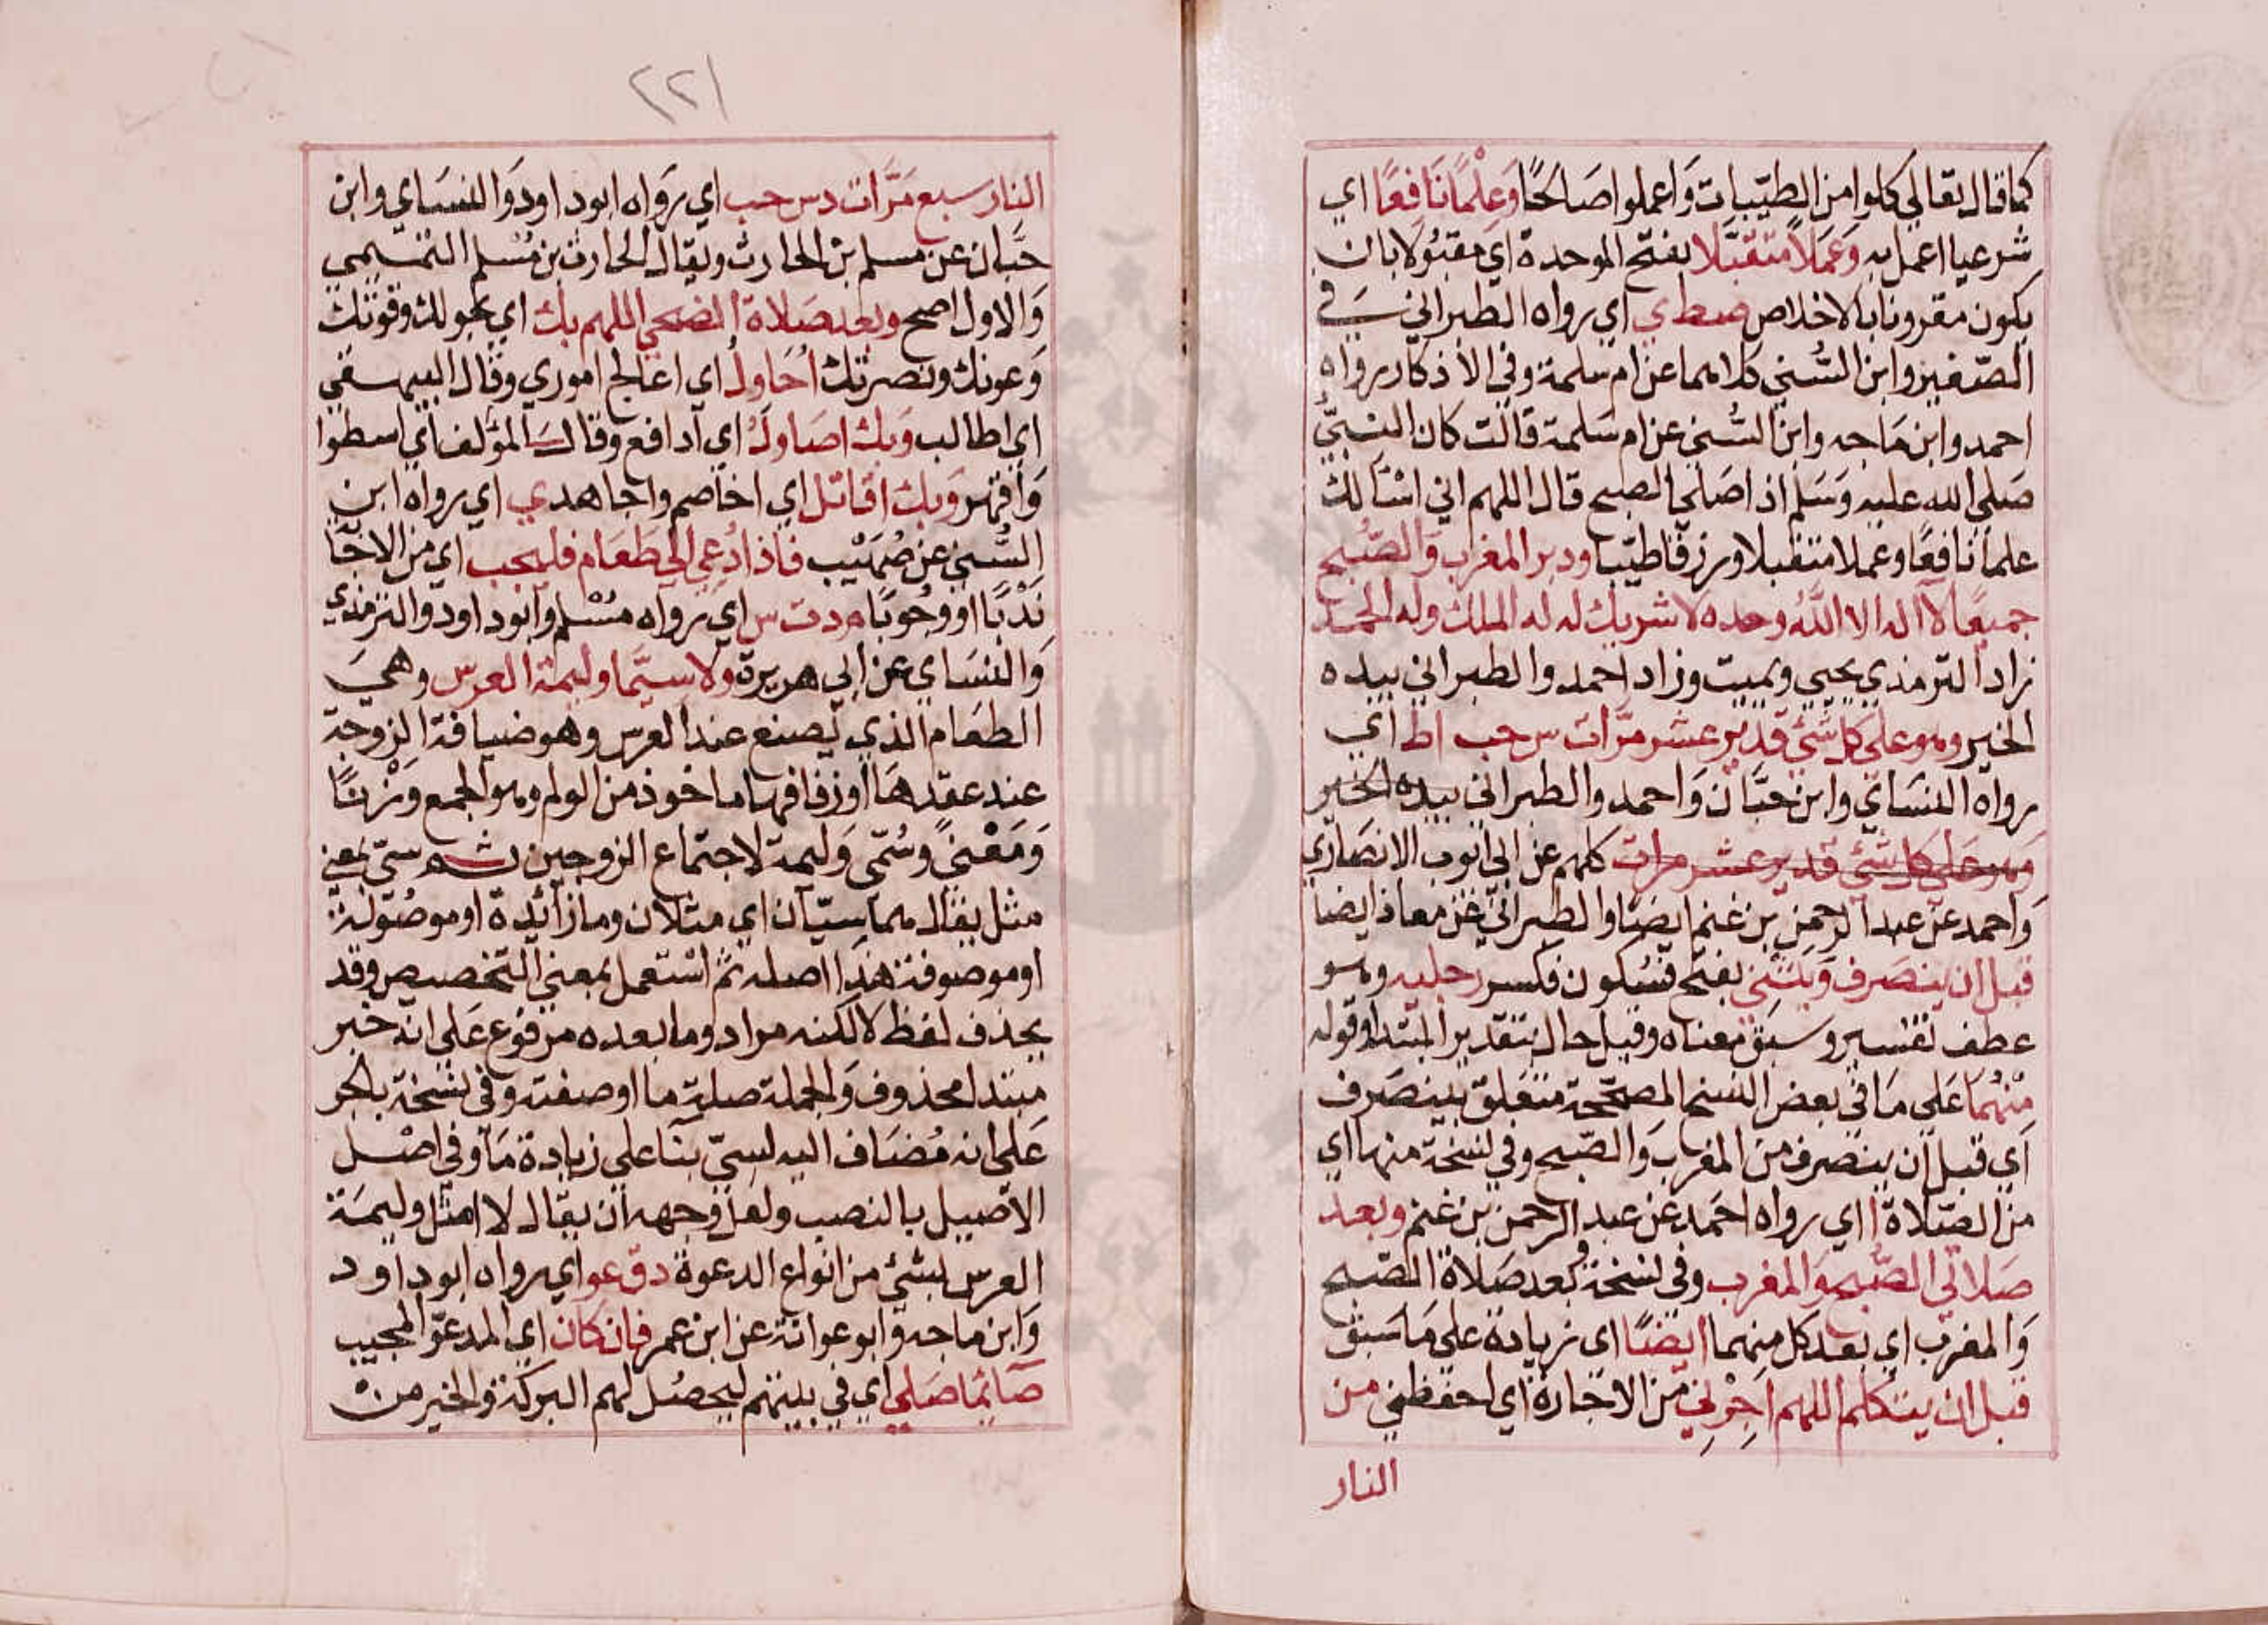 كما قال تعالي كلوا من الطيّبات وَاعملوا صَالحًا وَعِلْمًا نَافِعًا اي
شرعيا اعمل به وَعَمَلاً متقبَّلا بفتح الموحدة اي مقبُولا بان
يكون مقرونا بالاخلاص صط ي اي رواه الطبراني في
الصّغير وابن السُّني كلاهما عن ام سلمة وفي الأذكار رواه
احمد وابن مَاجه وابن السُّني عن ام سَلمة قالت كان النبيُّ
صَلي الله عليه وَسَلم اذا صَلي الصبح قال اللهم اني اسْألك
علمًا نافعًا وعملا متقبلا ورزقا طيّبا ودبر المغرب وَالصّبح
جميعًا لآ اله الا اللهُ وحده لا شريك له له الملك وله الحمد
زاد الترمذي يحيي ويميت وزاد احمد والطبراني بيده
الخير وهو على كل شيْ قدير عشر مرّات س حب اط اي
رواه النسَائي وابن حبَّان وَاحمد والطبراني بيده الخير
وَهو عَلي كل شيْ قدير عشر مرات كلهم عن ابي ايوب الانصَاري
وَاحمد عن عبد الرحمن بن غنم ايضًا والطبرانيّ عن معاذ ايضا
قبل ان ينصَرف وَيَثني بفتح فسُكون فكسر رجليه وهو
عطف تفسير وسبَق معناه وقيل حال بتقدير المبتدا وقوله
مِنْهُمَا عَلي مَا في بعض النسخ المصحّحة متعَلق بينصَرف
اَي قبل ان ينصرف من المغرب وَالصّبح وفي نسخة منها اي
من الصّلاة ا اي رواه احَمد عن عبد الرحمن بن غنم وبعد
صَلاتي الصُّبح وَالمغرب وفي نسخة وبعد صَلاة الصّبح
وَالمغرب اي بعد كل منهما ايضًا اي زيادة علي مَا سَبق
قبل ان يتكلم اللهم اَجِرْنِي من الاجارة اي احفظني من
النار
٢٢١
النار سبع مَرَّات د س حب اي رَوَاه ابو داود وَالنسَاي وابن
حَبَّان عن مسلم بن الحارث ويقال الحارث بن مُسْلم التمسيمي
وَالاول اصح وبعد صَلاة الضحي اللهم بك اي بحولك وقوتك
وَعونك ونصرتك اُحَاولُ اي اعالج اموري وقال البيهقي
اي اطالب وَبك اصَاولُ اي ادافع وقال المؤلف اي اسطوا
وَاقهر وَبك اقاتل اي اخاصم واجاهد ي اي رواه ابن
السُّني عن صُهَيْب فاذا دُعي الي طَعَام فليجب اي من الاجَا
نَدْبًا او وُجُوبًا م د ت س اي رواه مسْلم وَابود اود والترمذي
وَالنسَاي عن ابي هريرة ولا سيّما وليمة العرس وهيَ
الطعَام الذي يصنع عند العرس وهو ضيافة الزوجة
عند عقدهَا او زفافها ماخوذ من الولم وهو الجمع وَزْنًا
وَمَعْنيً وسُمّى وَليمة لاجتماع الزوجين ثم سيّ بمعني
مثل يقال هما سِيّان اي مثلان وما زائدة او موصُولة
او موصوفة هَذا اصله ثمَّ اسْتعمل بمعني التخصيص وقد
يحذف لفظ لا لكنه مراد وما بعده مرفوع عَلي انه خبر
مبتدا محذوف وَالجملة صلة ما او صفته وفي نسخة بالجر
عَلي انه مُضَاف اليه لسِيّ بنَا علي زيادة مَا وفي اصْل
الاَصيل بالنصب ولعل وَجهه ان يقال لا امثل وليمَة
العرس بشيْ من انواع الدعوة د ق عو اي رواه ابوداود
وَابن ماجه وَابو عوانة عن ابن عمر فان كان اي المدعوّ المجيب
صَائمًا صَلي اي في بيتهم ليحصُل لهم البركة والخير من